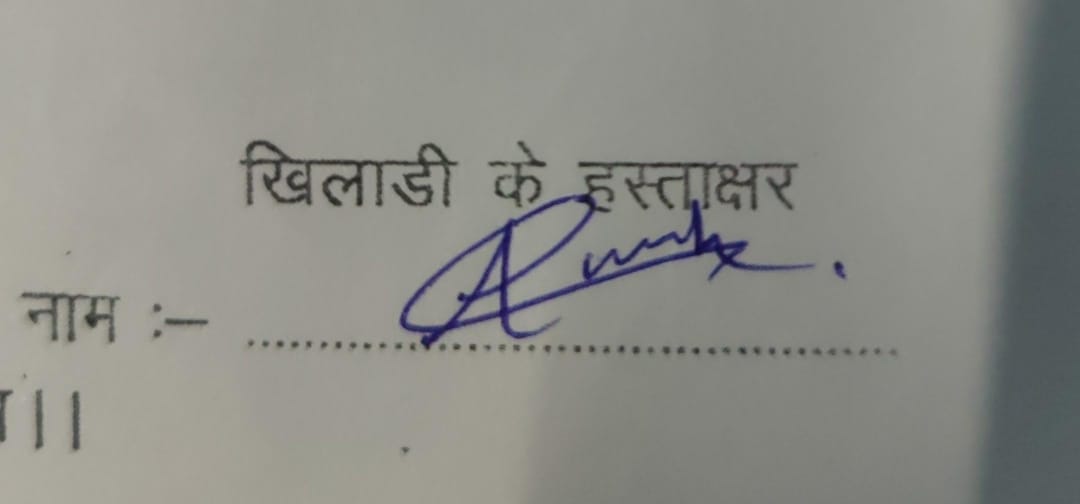 खिलाडी के हस्ताक्षर
नाम :– ....................................................
||